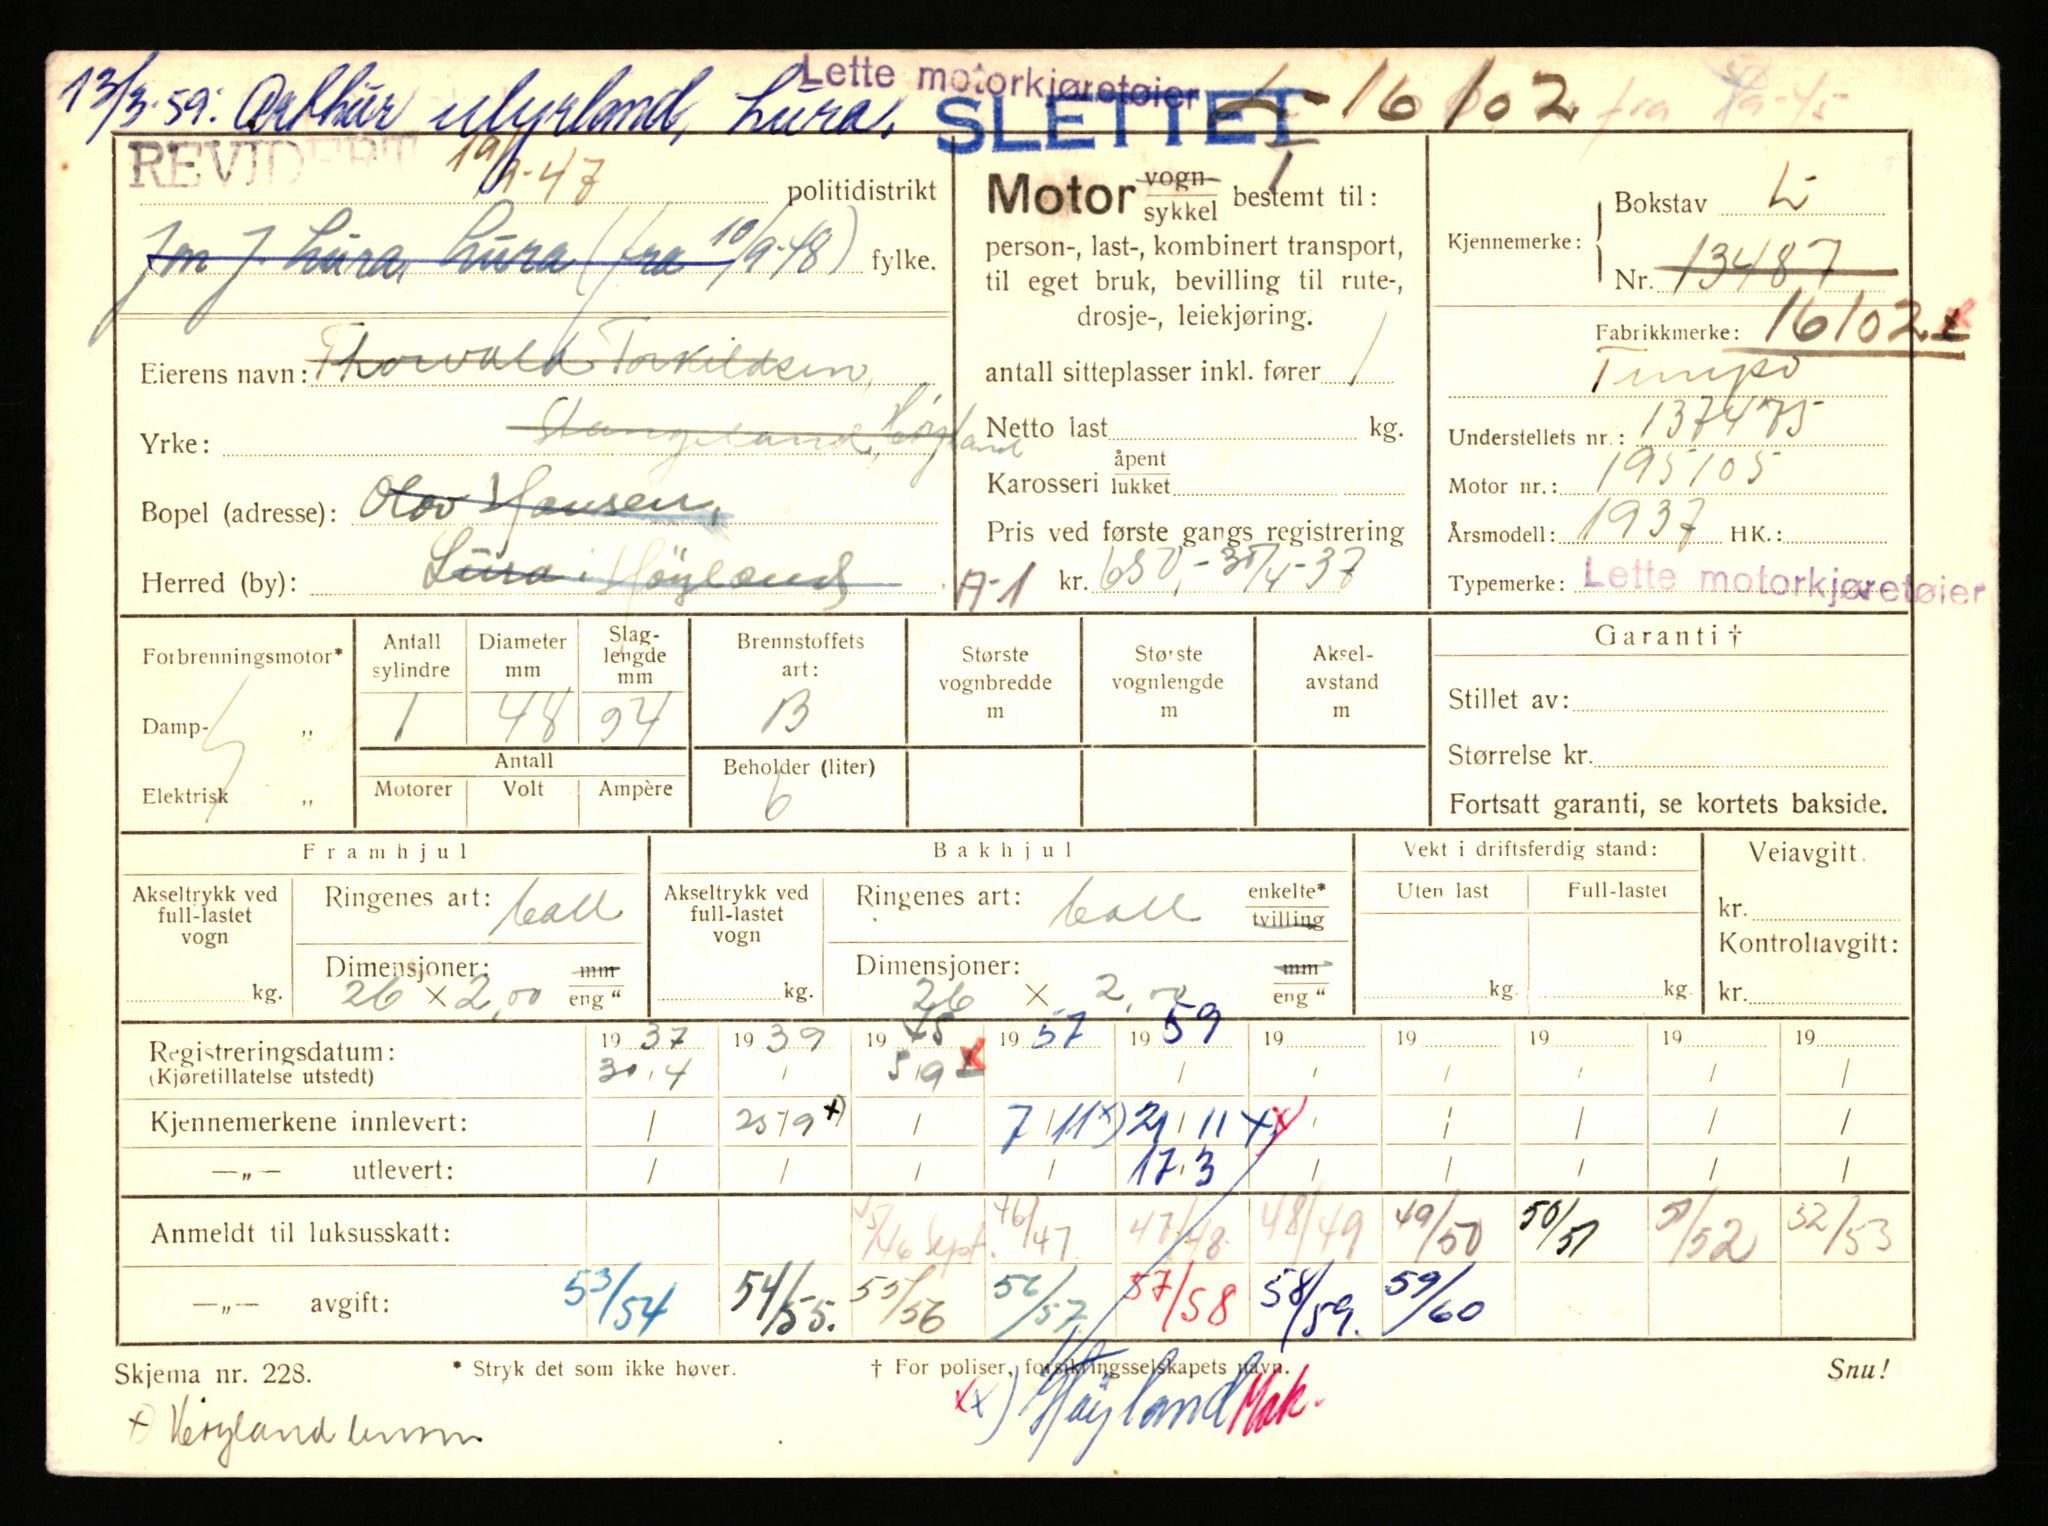 Lette motorkjøretøier
13/3-59: Arthur Myrland, Lura,
SLETTET
L-16102 fra 5/9-45
REVIDERT
19/9-47
politidistrikt
Jon J. Lura, Lura (fra 10/9-48) fylke.
Eierens navn: Thorvald Torkildsen,
Yrke: Stangeland, Høyland
Bopel (adresse): Olav Hansen,
Herred (by): Lura i Høyland
Motor vogn sykkel bestemt til:
person-, last-, kombinert transport,
til eget bruk, bevilling til rute-,
drosje-, leiekjøring.
antall sitteplasser inkl. fører 1
Netto last kg.
Karosseri åpent lukket
Pris ved første gangs registrering
A-1 kr. 650,- 30/4-37
Kjennemerke: Bokstav L
Nr. 13487
16102 x
Fabrikkmerke:
Tempo
Understellets nr.: 137475
Motor nr.: 195105
Årsmodell: 1937 HK.:
Typemerke: Lette motorkjøretøier
Forbrenningsmotor*
Damp- „
Elektrisk „
Antall sylindre 1
Diameter mm 48
Slaglengde mm 94
Antall
Motorer Volt Ampère
Brennstoffets art: B
Beholder (liter)
6
Største vognbredde m
Største vognlengde m
Aksel-avstand m
Garanti †
Stillet av:
Størrelse kr.
Fortsatt garanti, se kortets bakside.
Framhjul
Akseltrykk ved full-lastet vogn
kg.
Ringenes art: ball
Dimensjoner: mm eng "
26 x 2,00
Bakhjul
Akseltrykk ved full-lastet vogn
kg.
Ringenes art: ball enkelte* tvilling
Dimensjoner: mm eng "
26 x 2,00
Vekt i driftsferdig stand:
Uten last Full-lastet
kg. kg.
Veiavgift.
kr.
Kontrollavgift:
kr.
Registreringsdatum: 1937 1939 1945 1957 1959 19 19 19 19 19
(Kjøretillatelse utstedt) 30/4 / 5/9 x / / / / / /
Kjennemerkene innlevert: / 25/9 x) / 7/11 x) 21/11 xx / / / / /
—„— utlevert: / / / / 17/3 / / / / /
Anmeldt til luksusskatt: 45/46 Sept. 46/47 47/48 48/49 49/50 50/51 51/52 52/53
—„— avgift: 53/54 54/55. 55/56 56/57 57/58 58/59. 59/60
Skjema nr. 228.
* Stryk det som ikke høver.
† For poliser, forsikringsselskapets navn.
Snu!
x) Høyland lensm
xx) Høyland Mak.